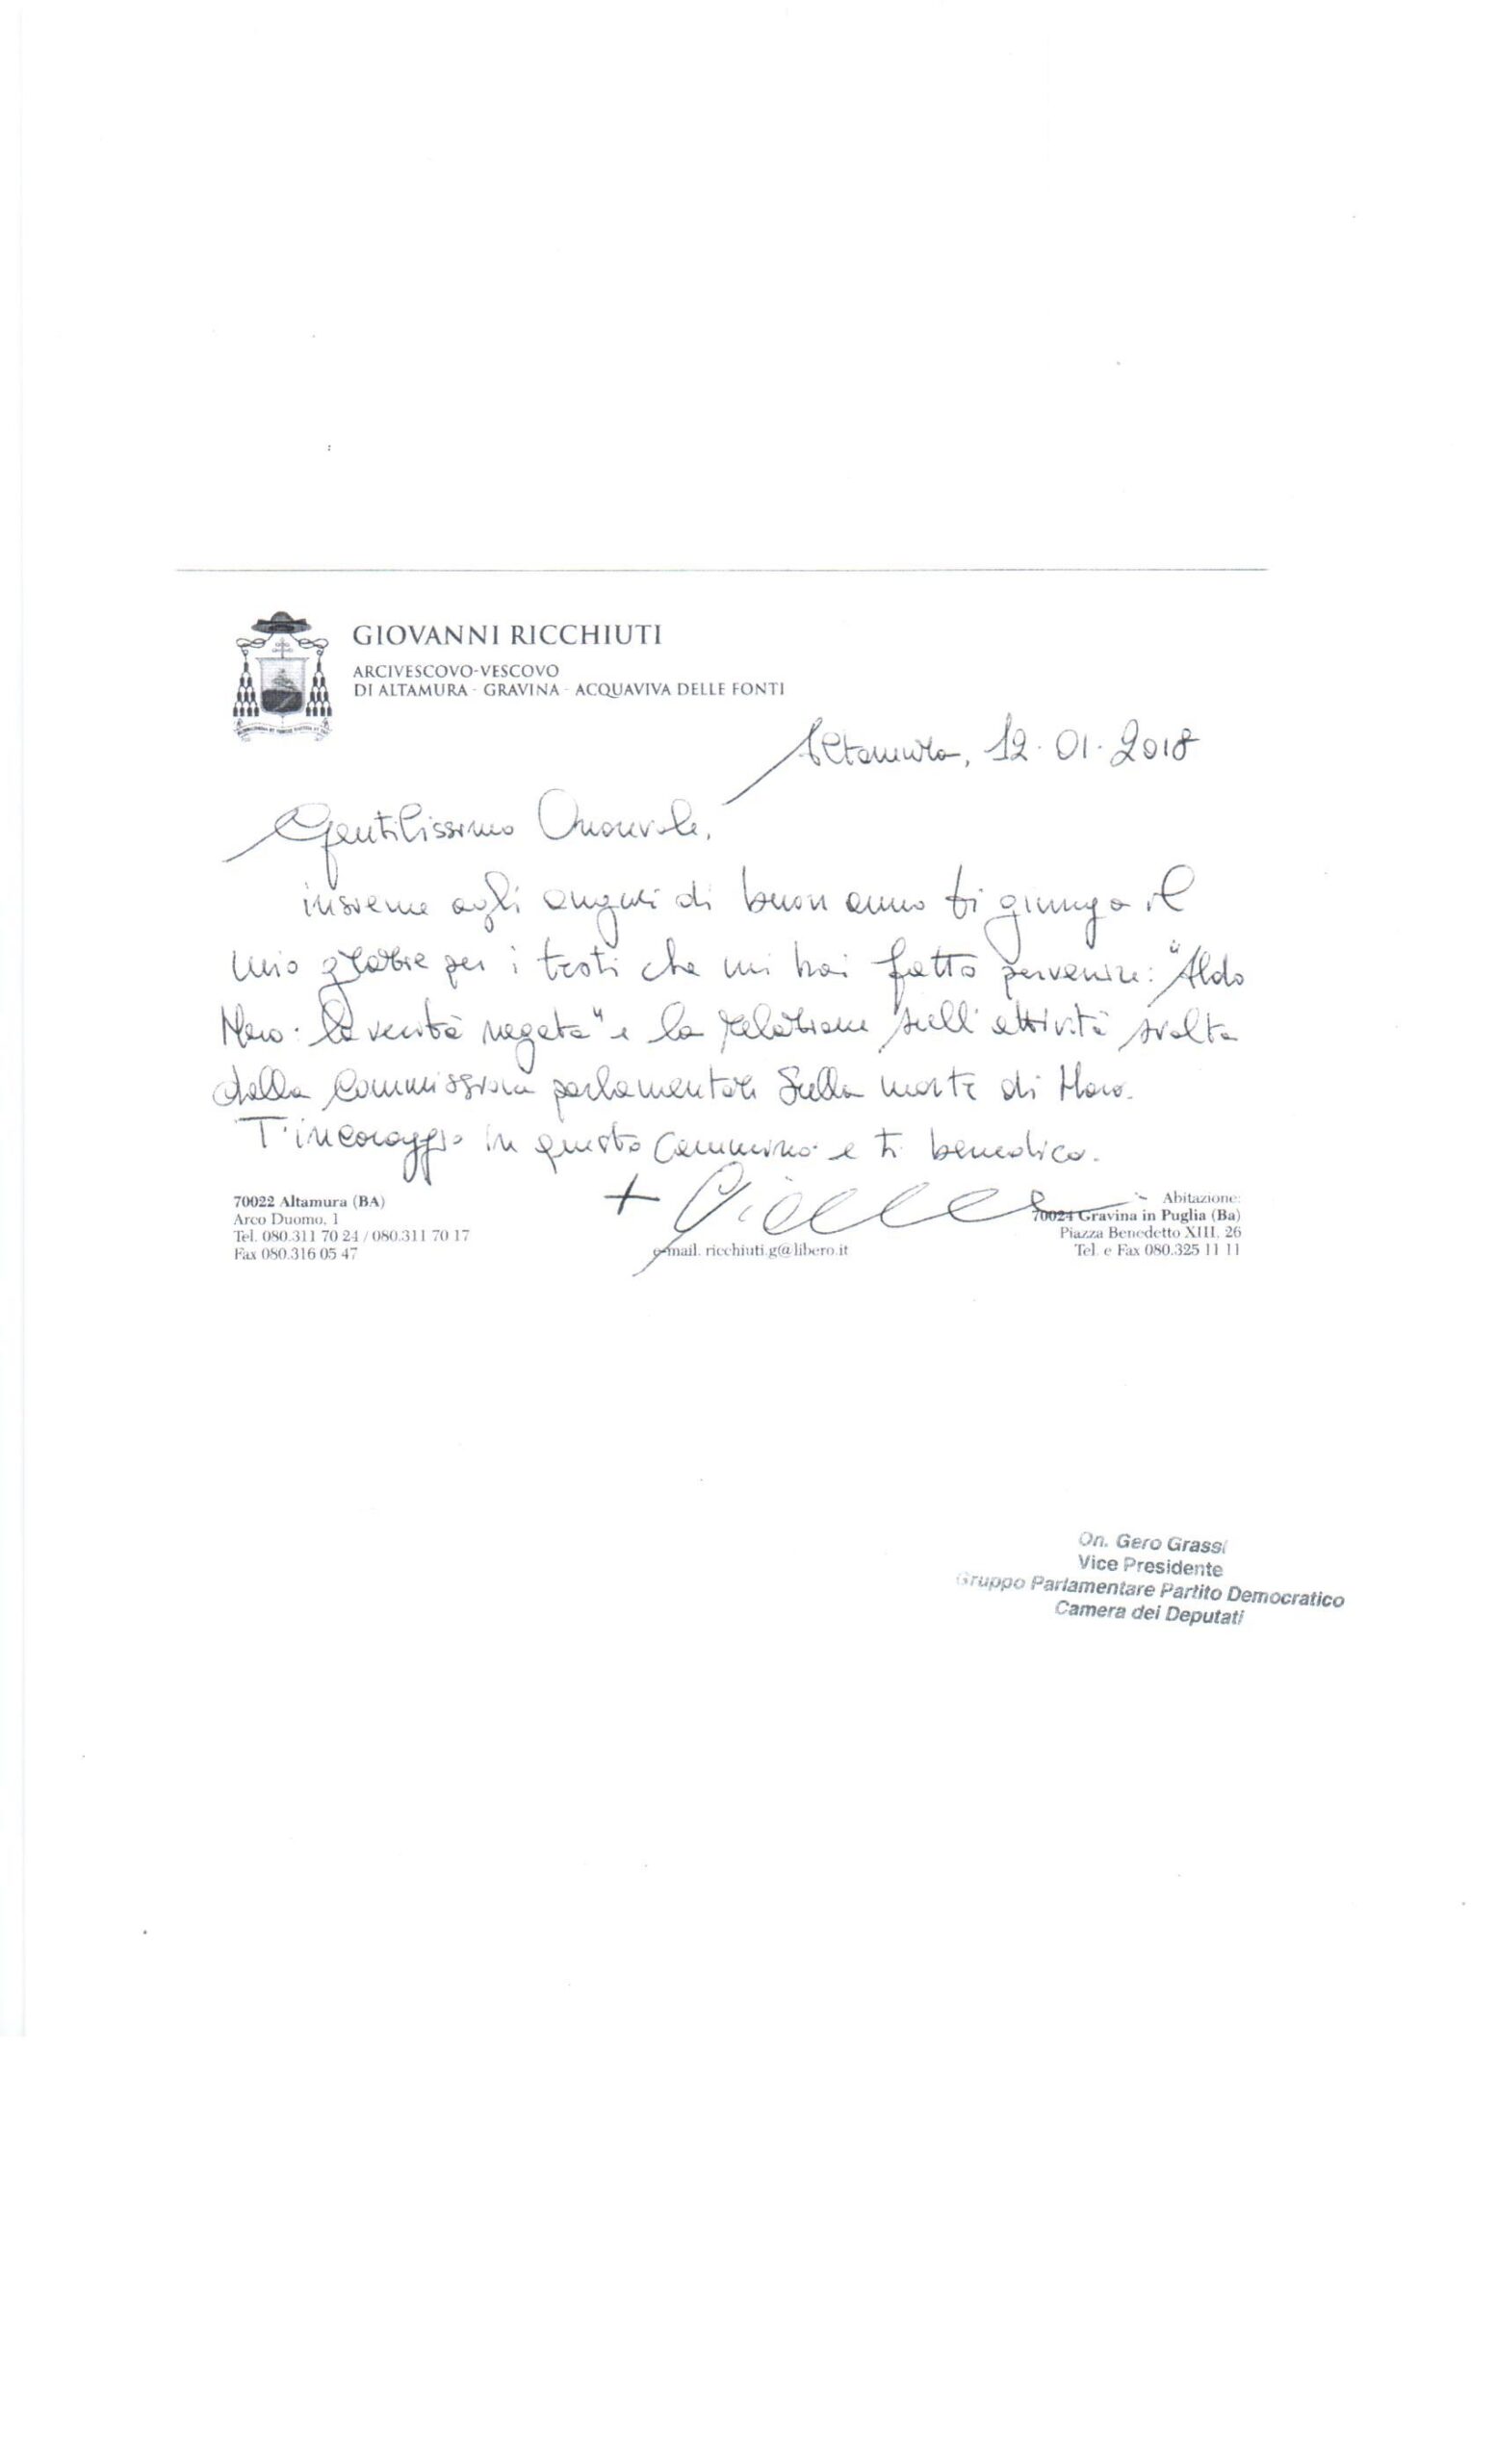 GIOVANNI RICCHIUTI
ARCIVESCOVO-VESCOVO
DI ALTAMURA - GRAVINA - ACQUAVIVA DELLE FONTI
Altamura, 12.01.2018
Gentilissimo Onorevole,
insieme agli auguri di buon anno ti giunga il
mio grazie per i testi che mi hai fatto pervenire: "Aldo
Moro: la verità negata" e la relazione sull'attività svolta
dalla Commissione parlamentare sulla morte di Moro.
T'incoraggio in questo cammino e ti benedico.
+
70022 Altamura (BA)
Arco Duomo, 1
Tel. 080.311 70 24 / 080.311 70 17
Fax 080.316 05 47
e-mail. ricchiuti.g@libero.it
Abitazione:
70024 Gravina in Puglia (Ba)
Piazza Benedetto XIII, 26
Tel. e Fax 080.325 11 11
On. Gero Grassi
Vice Presidente
Gruppo Parlamentare Partito Democratico
Camera dei Deputati